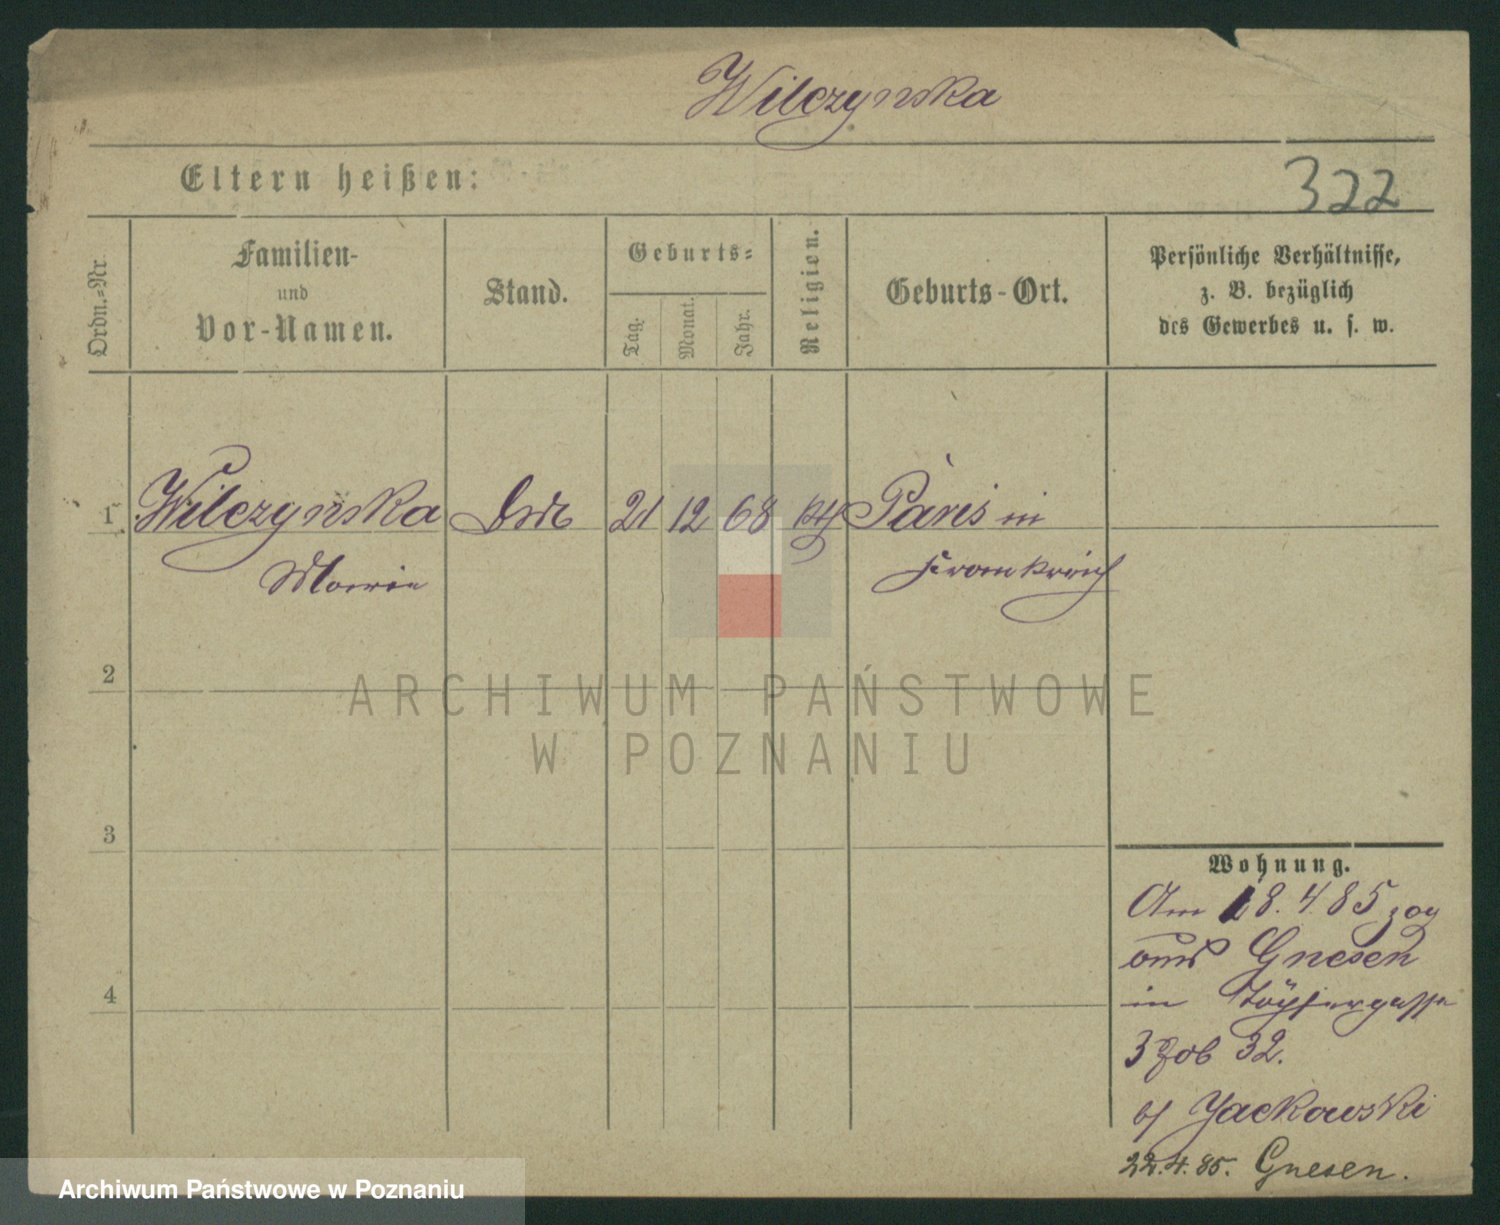 Wilczynska
Eltern heißen:
322
Ordn.-Nr.
Familien-
und
Vor-Namen.
Stand.
Geburts-
Tag.
Monat.
Jahr.
Religion.
Geburts-Ort.
Persönliche Verhältnisse,
z. B. bezüglich
des Gewerbes u. s. w.
1 Wilczynska 21 12 68 kth Paris in
Marie Frankreich
2
ARCHIWUM PAŃSTWOWE
W POZNANIU
3
4
Wohnung.
Am 18. 4 85 zog
aus Gnesen
in Töpfergasse
3 Zob 32.
b/ Jackowski
22.4.85. Gnesen.
Archiwum Państwowe w Poznaniu